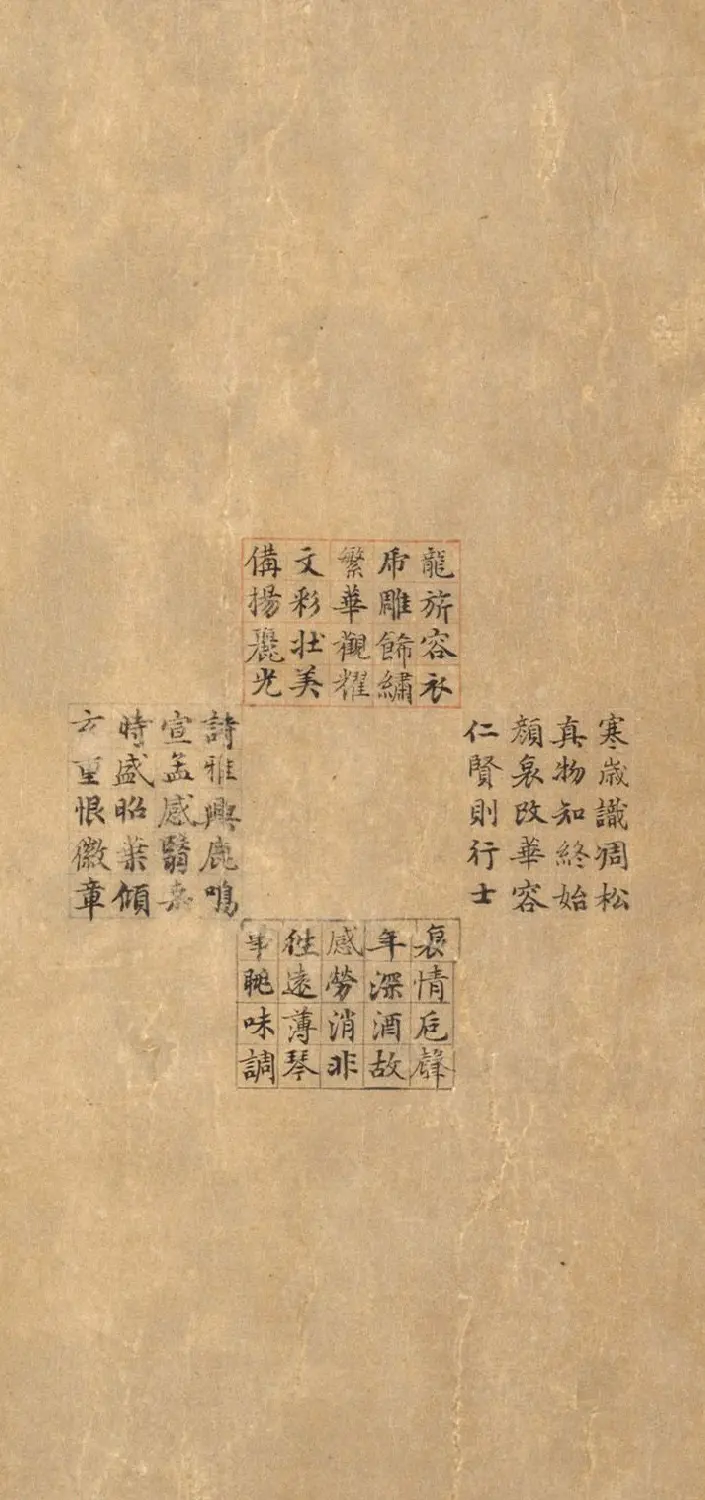 龍旂容衣
雕飾繡
繁華觀耀
文彩壯美
備揚麗光
寒歲識凋松
真物知終始
顏衰改華容
仁賢則行士
詩雅興鹿鳴
宣孟感翳
時盛昭業傾
方重恨徽章
哀情卮聲
年深酒故
感勞消非
往遠薄琴
眺味調